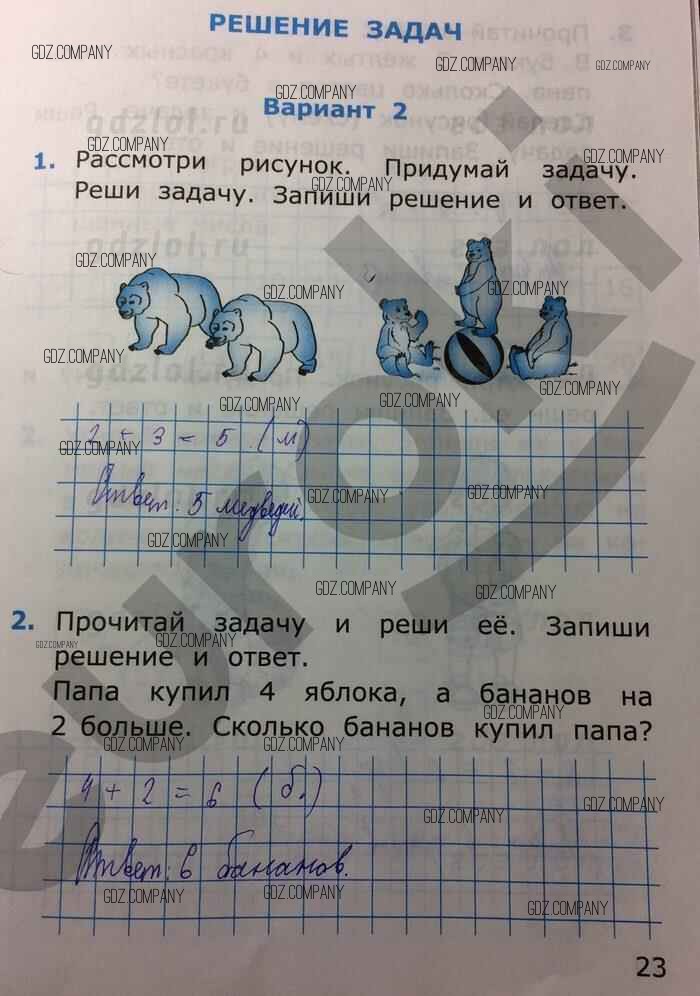 РЕШЕНИЕ ЗАДАЧ
Вариант 2
1. Рассмотри рисунок. Придумай задачу.
Реши задачу. Запиши решение и ответ.
2 + 3 = 5 (м)
Ответ: 5 медведей.
2. Прочитай задачу и реши её. Запиши
решение и ответ.
Папа купил 4 яблока, а бананов на
2 больше. Сколько бананов купил папа?
4 + 2 = 6 (б.)
Ответ: 6 бананов.
23
GDZ.COMPANY
gdzlol.ru
euroki